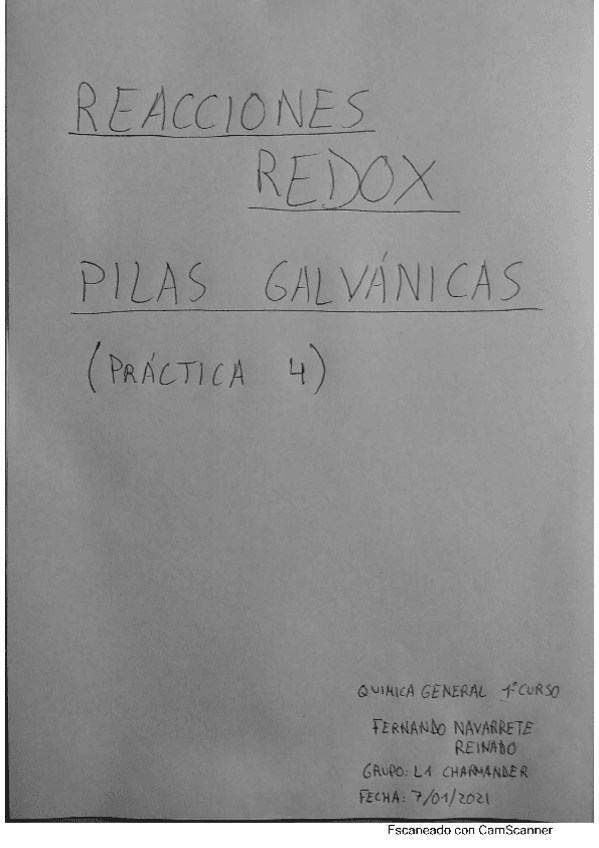 REACCIONES
REDOX
PILAS GALVÁNICAS
(PRÁCTICA 4)
QUIMICA GENERAL 1º CURSO
FERNANDO NAVARRETE
REINADO
GRUPO: L1 CHARMANDER
FECHA: 7/01/2021
Escaneado con CamScanner